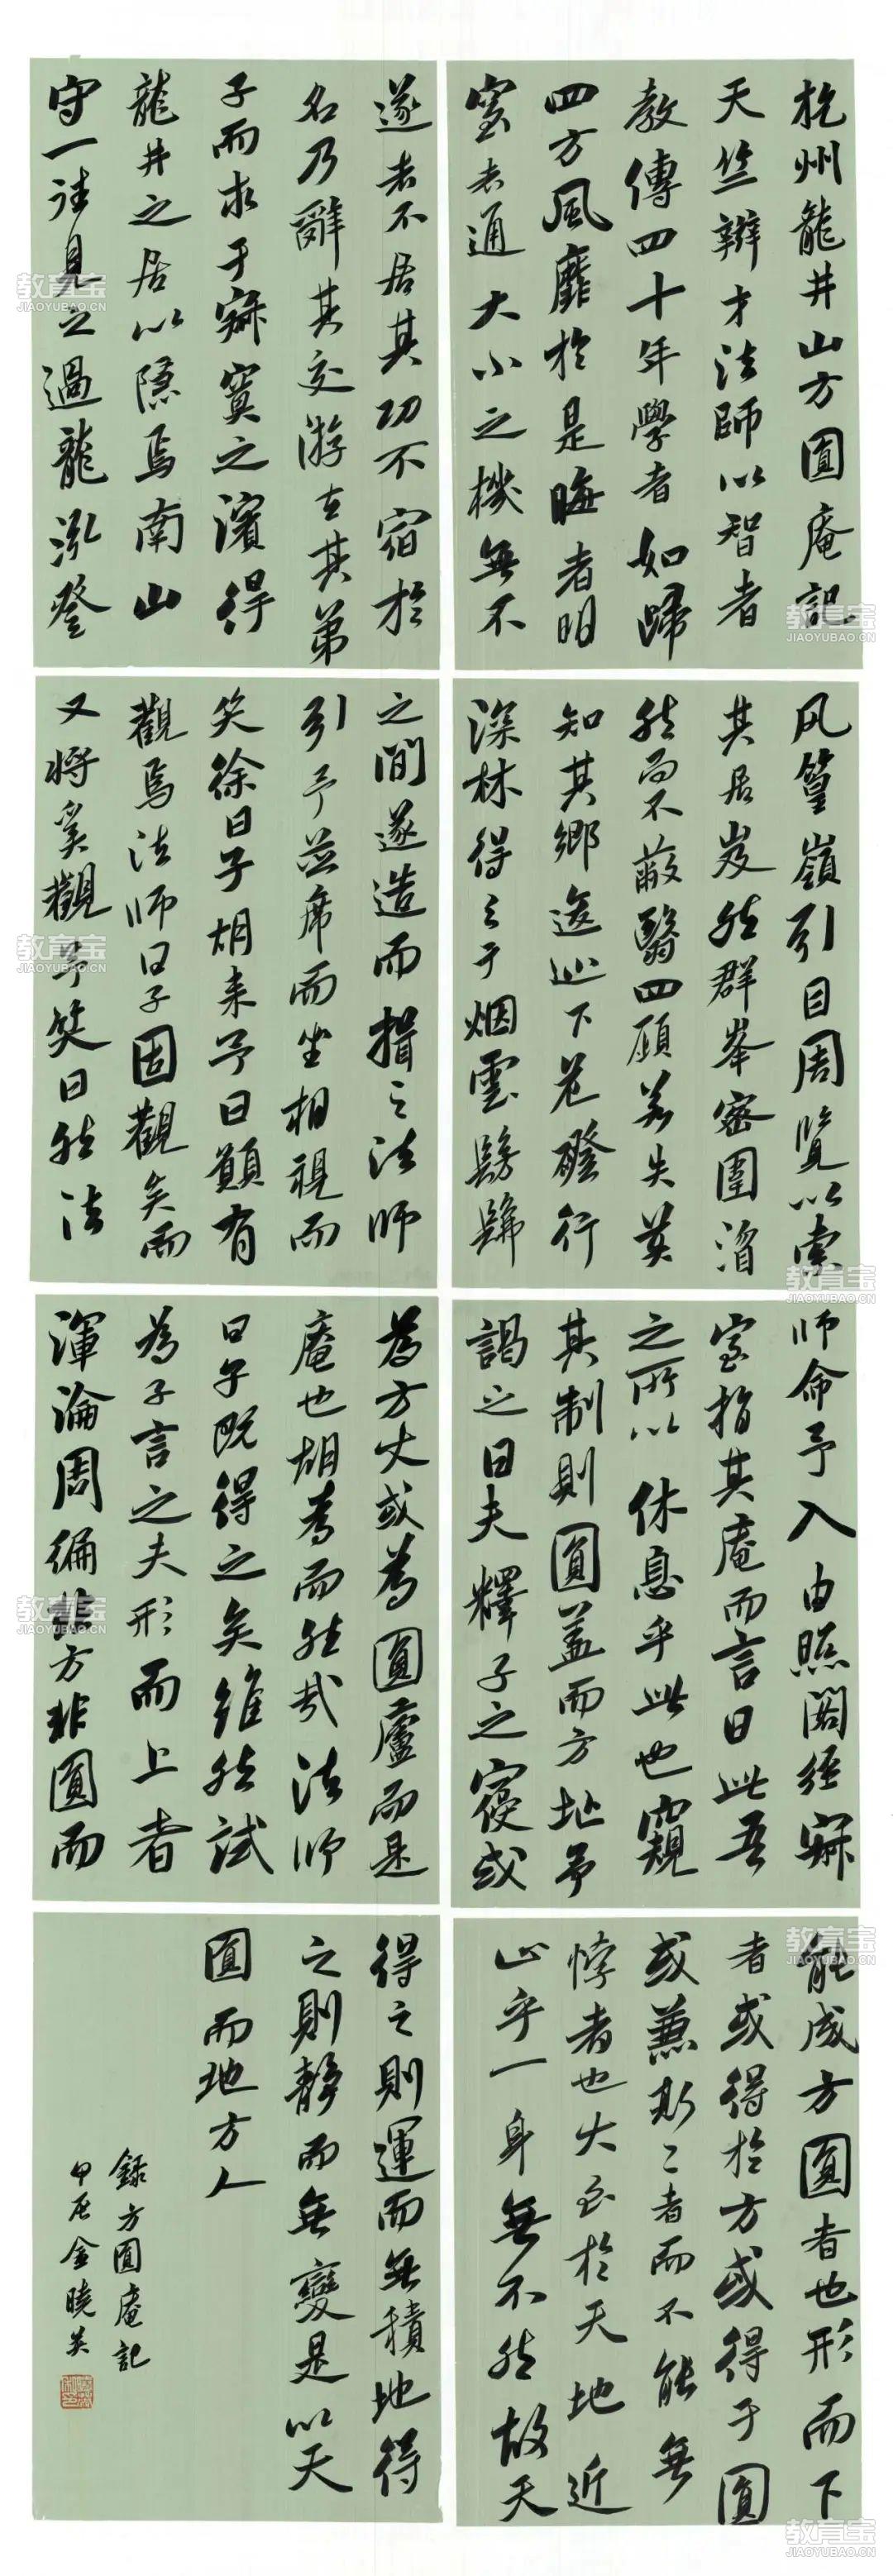 杭州龍井山方圓庵記
天竺辯才法師以智者
教傳四十年學者如歸
四方風靡於是晦者明
窒者通大小之機無不
遂者不居其功不宿於
名乃辭其交游去其弟
子而求于寂寞之濱得
龍井之居以隱焉南山
守一往見之過龍泓登
风篁嶺引目周覽以索
其居岌然群峯密圍溍
然而不蔽翳四顧若失莫
知其鄉逡巡下危磴行
深林得之于烟雲髣髴
之間遂造而揖之法師
引予並席而坐相視而
笑徐曰子胡来予曰願有
觀焉法师曰子固觀矣而
又將奚觀予笑曰然法
师命予入由照閣經寂
室指其庵而言曰此吾
之所以休息乎此也窺
其制則圓蓋而方址予
謁之曰夫釋子之寝或
為方丈或為圓廬而是
庵也胡為而然哉法师
曰子既得之矣雖然試
為子言之夫形而上者
渾淪周徧非方非圓而
能成方圓者也形而下
者或得於方或得于圓
或兼斯二者而不能無
悖者也大至於天地近
止乎一身無不然故天
得之則運而無積地得
之則靜而無變是以天
圓而地方人
錄方圓庵記
甲辰金曉英
教育宝
JIAOYUBAO.CN
教育宝
JIAOYUBAO.CN
教育宝
JIAOYUBAO.CN
教育宝
JIAOYUBAO.CN
教育宝
JIAOYUBAO.CN
教育宝
JIAOYUBAO.CN
教育宝
JIAOYUBAO.CN